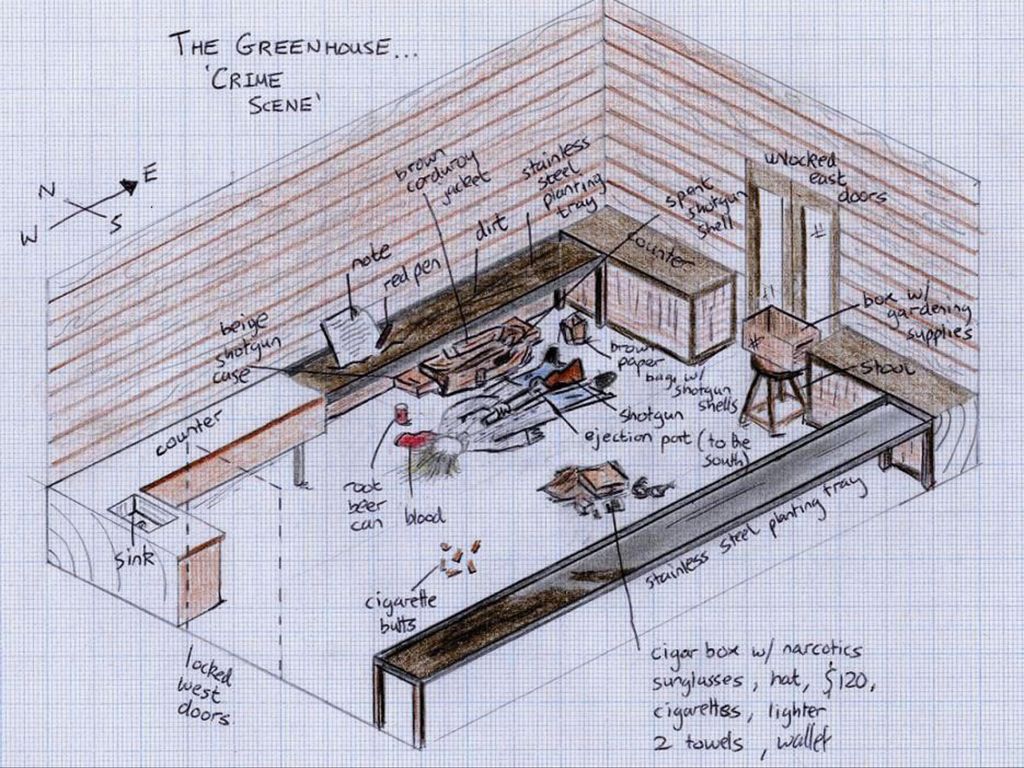 THE GREENHOUSE...
'CRIME
SCENE'
N
E
W
S
brown
corduroy
jacket
stainless
steel
planting
tray
spent
shotgun
shell
unlocked
east
doors
note
red pen
dirt
counter
beige
shotgun
case
box w/
gardening
supplies
brown
paper
bag w/
shotgun
shells
stool
shotgun
ejection port (to the
south)
counter
root
beer
can
blood
sink
cigarette
butts
stainless steel planting tray
locked
west
doors
cigar box w/ narcotics
sunglasses, hat, $120,
cigarettes, lighter
2 towels, wallet